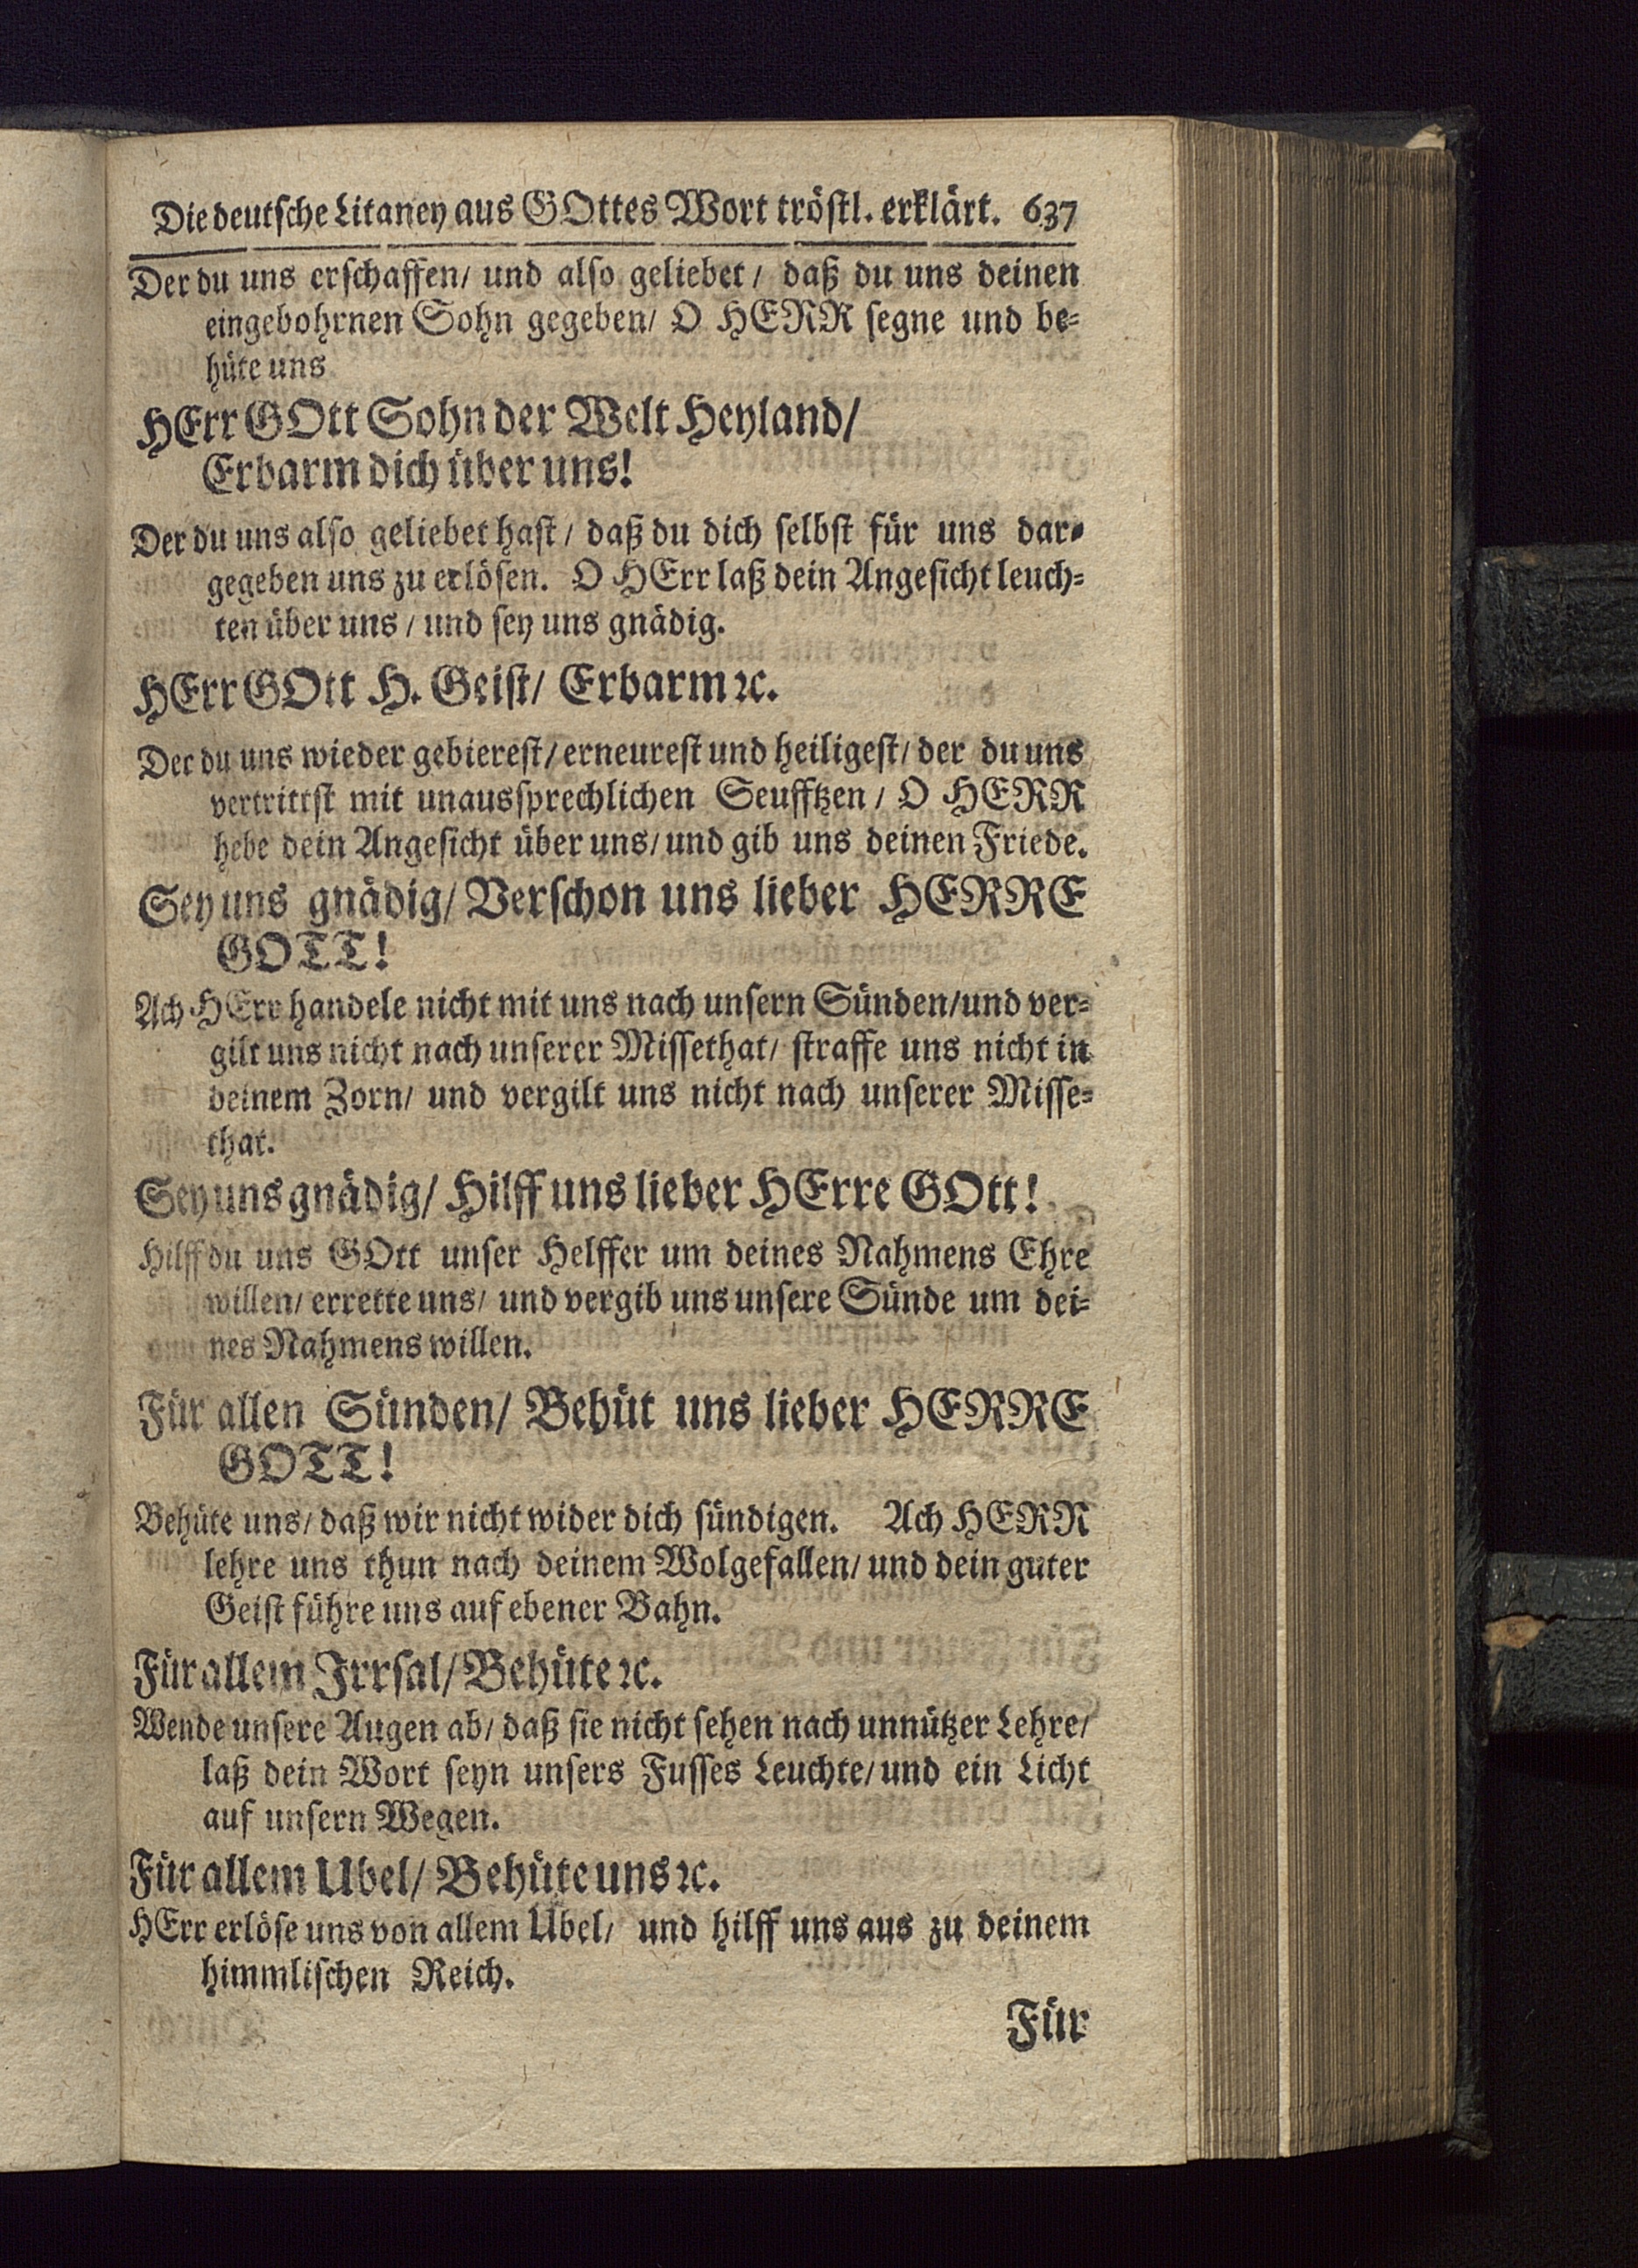 Die deutsche Litaney aus GOttes Wort tröstl. erklärt. 637
Der du uns erschaffen/ und also geliebet/ daß du uns deinen
eingebohrnen Sohn gegeben/ O HERR segne und be=
hüte uns
HErr GOtt Sohn der Welt Heyland/
Erbarm dich über uns!
Der du uns also geliebet hast/ daß du dich selbst für uns dar=
gegeben uns zu erlösen. O HErr laß dein Angesicht leuch=
ten über uns/ und sey uns gnädig.
HErr GOtt H. Geist/ Erbarm ꝛc.
Der du uns wieder gebierest/ erneurest und heiligest/ der du uns
vertrittst mit unaussprechlichen Seufftzen/ O HERR
hebe dein Angesicht über uns/ und gib uns deinen Friede.
Sey uns gnädig/ Verschon uns lieber HERRE
GOTT!
Ach HErr handele nicht mit uns nach unsern Sünden/ und ver=
gilt uns nicht nach unserer Missethat/ straffe uns nicht in
deinem Zorn/ und vergilt uns nicht nach unserer Misse=
that.
Sey uns gnädig/ Hilff uns lieber HErre GOtt!
Hilff du uns GOtt unser Helffer um deines Nahmens Ehre
willen/ errette uns/ und vergib uns unsere Sünde um dei=
nes Nahmens willen.
Für allen Sünden/ Behüt uns lieber HERRE
GOTT!
Behüte uns/ daß wir nicht wider dich sündigen. Ach HERR
lehre uns thun nach deinem Wolgefallen/ und dein guter
Geist führe uns auf ebener Bahn.
Für allem Irrsal/ Behüte ꝛc.
Wende unsere Augen ab/ daß sie nicht sehen nach unnützer Lehre/
laß dein Wort seyn unsers Fusses Leuchte/ und ein Licht
auf unsern Wegen.
Für allem Ubel/ Behüte uns ꝛc.
HErr erlöse uns von allem Ubel/ und hilff uns aus zu deinem
himmlischen Reich.
Für